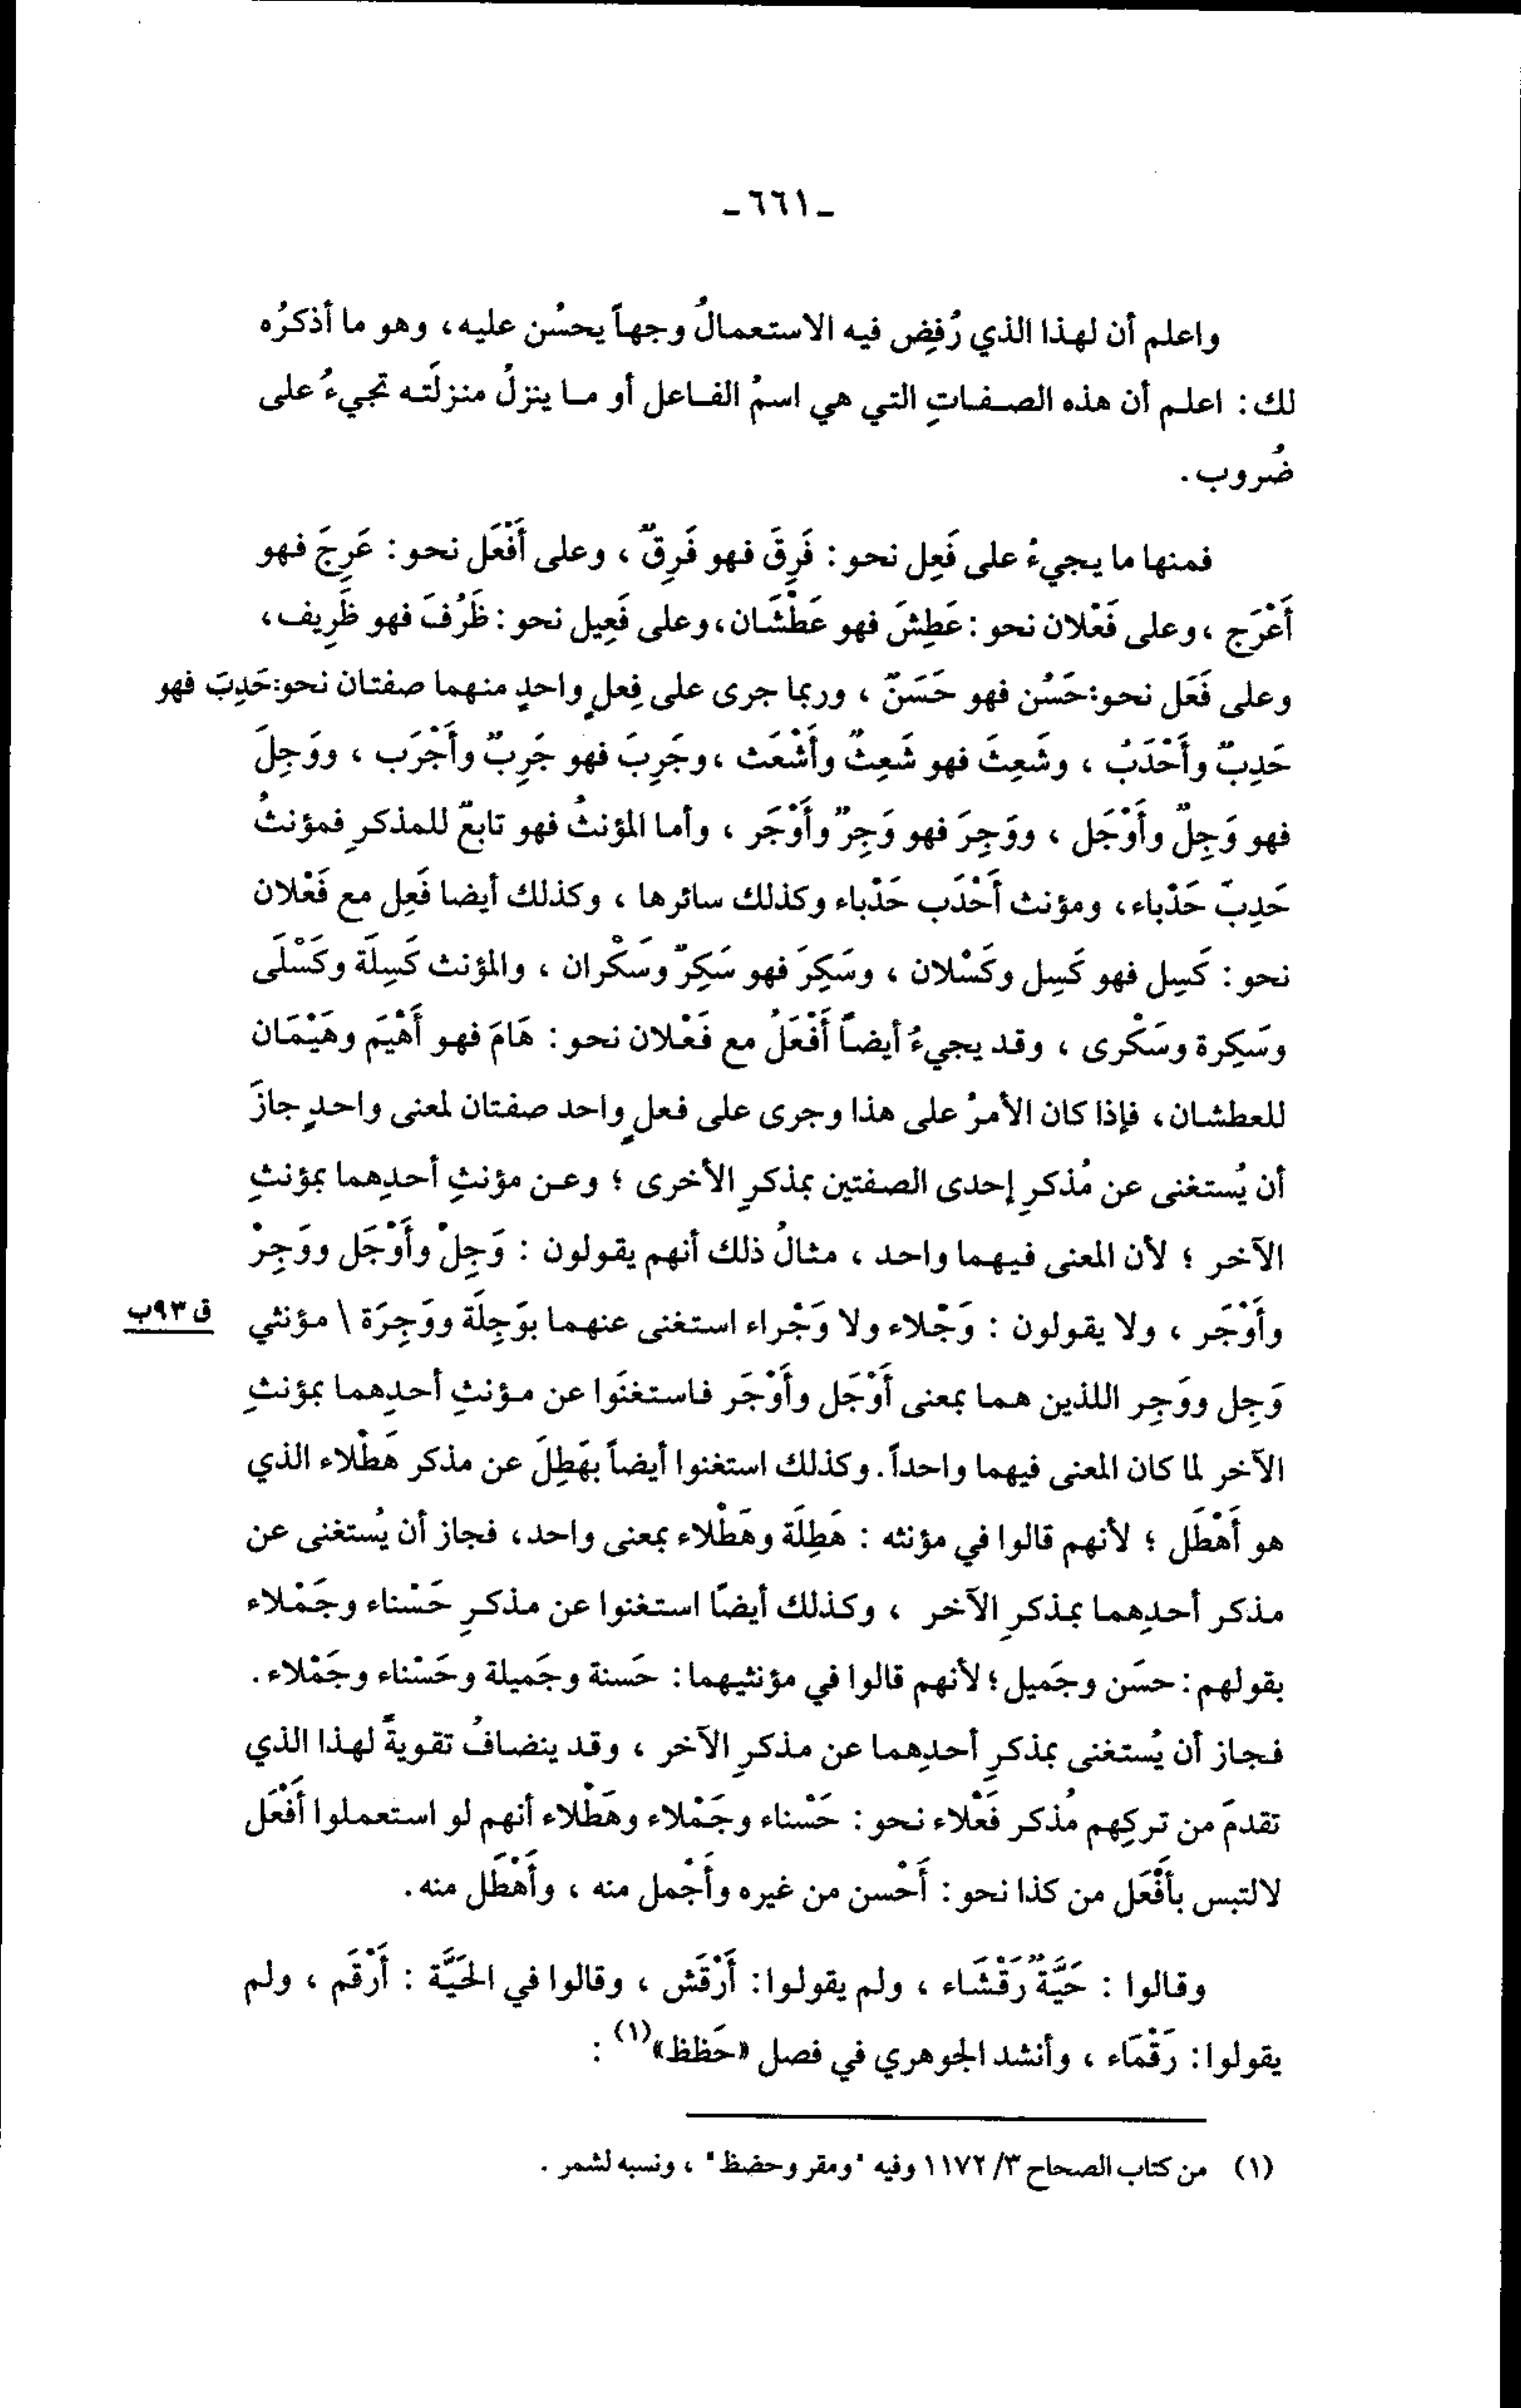 ـ ٦٦١ ـ
واعلم أن لهذا الذي رُفِض فيه الاستعمالُ وجهاً يحسُن عليه، وهو ما أذكرُه
لك: اعلم أن هذه الصفاتِ التي هي اسمُ الفاعل أو ما ينزلُ منزلَته تجيءُ على
ضُروب.
فمنها ما يجيءُ على فَعِل نحو: فَرِقَ فهو فَرِقٌ، وعلى أَفْعَل نحو: عَرِجَ فهو
أَعْرَج، وعلى فَعْلان نحو: عَطِشَ فهو عَطْشَان، وعلى فَعِيل نحو: ظَرُفَ فهو ظَرِيف،
وعلى فَعَل نحو: حَسُن فهو حَسَنٌ، وربما جرى على فِعلٍ واحدٍ منهما صفتان نحو: حَدِبَ فهو
حَدِبٌ وأَحْدَبُ، وشَعِثَ فهو شَعِثٌ وأَشْعَث، وجَرِبَ فهو جَرِبٌ وأَجْرَب، ووَجِلَ
فهو وَجِلٌ وأَوْجَل، ووَجِرَ فهو وَجِرٌ وأَوْجَر، وأما المؤنثُ فهو تابعٌ للمذكرِ فمؤنثُ
حَدِبَ حَدْباء، ومؤنث أَحْدَب حَدْباء وكذلك سائرها، وكذلك أيضا فَعِل مع فَعْلان
نحو: كَسِل فهو كَسِل وكَسْلان، وسَكِرَ فهو سَكِرٌ وسَكْران، والمؤنث كَسِلَة وكَسْلَى
وسَكِرة وسَكْرى، وقد يجيءُ أيضاً أَفْعَلُ مع فَعْلان نحو: هَامَ فهو أَهْيَم وهَيْمَان
للعطشان، فإذا كان الأمرُ على هذا وجرى على فعلٍ واحد صفتان لمعنى واحدٍ جازَ
أن يُستغنى عن مُذكرِ إحدى الصفتين بمذكرِ الأخرى؛ وعن مؤنثِ أحدِهما بمؤنثِ
الآخر؛ لأن المعنى فيهما واحد، مثالُ ذلك أنهم يقولون: وَجِلْ وأَوْجَل ووَجِرْ
وأَوْجَر، ولا يقولون: وَجْلاء ولا وَجْراء استغنى عنهما بوَجِلَة ووَجِرَة \ مؤنثي ق ٩٣ب
وَجِل ووَجِر اللذين هما بمعنى أَوْجَل وأَوْجَر فاستغنَوا عن مؤنثِ أحدِهما بمؤنثِ
الآخر لما كان المعنى فيهما واحداً. وكذلك استغنوا أيضاً بهَطِلَ عن مذكر هَطْلاء الذي
هو أَهْطَل؛ لأنهم قالوا في مؤنثه: هَطِلَة وهَطْلاء بمعنى واحد، فجاز أن يُستغنى عن
مذكر أحدِهما بمذكرِ الآخر، وكذلك أيضًا استغنوا عن مذكرِ حَسْناء وجَمْلاء
بقولهم: حسَن وجَميل؛ لأنهم قالوا في مؤنثيهما: حَسنة وجَميلة وحَسْناء وجَمْلاء.
فجاز أن يُستغنى بمذكرِ أحدِهما عن مذكرِ الآخر، وقد ينضافُ تقويةً لهذا الذي
تقدمَ من تركِهم مُذكر فَعْلاء نحو: حَسْناء وجَمْلاء وهَطْلاء أنهم لو استعملوا أَفْعَل
لالتبس بأَفْعَل من كذا نحو: أَحْسن من غيره وأَجْمل منه، وأَهْطَل منه.
وقالوا: حَيَّةٌ رَقْشَاء، ولم يقولوا: أَرْقَش، وقالوا في الحَيَّة: أَرْقَم، ولم
يقولوا: رَقْمَاء، وأنشد الجوهري في فصل «حَظظ»(١):
(١) من كتاب الصحاح ٣/ ١١٧٢ وفيه "ومقر وحضظ"، ونسبه لشمر.